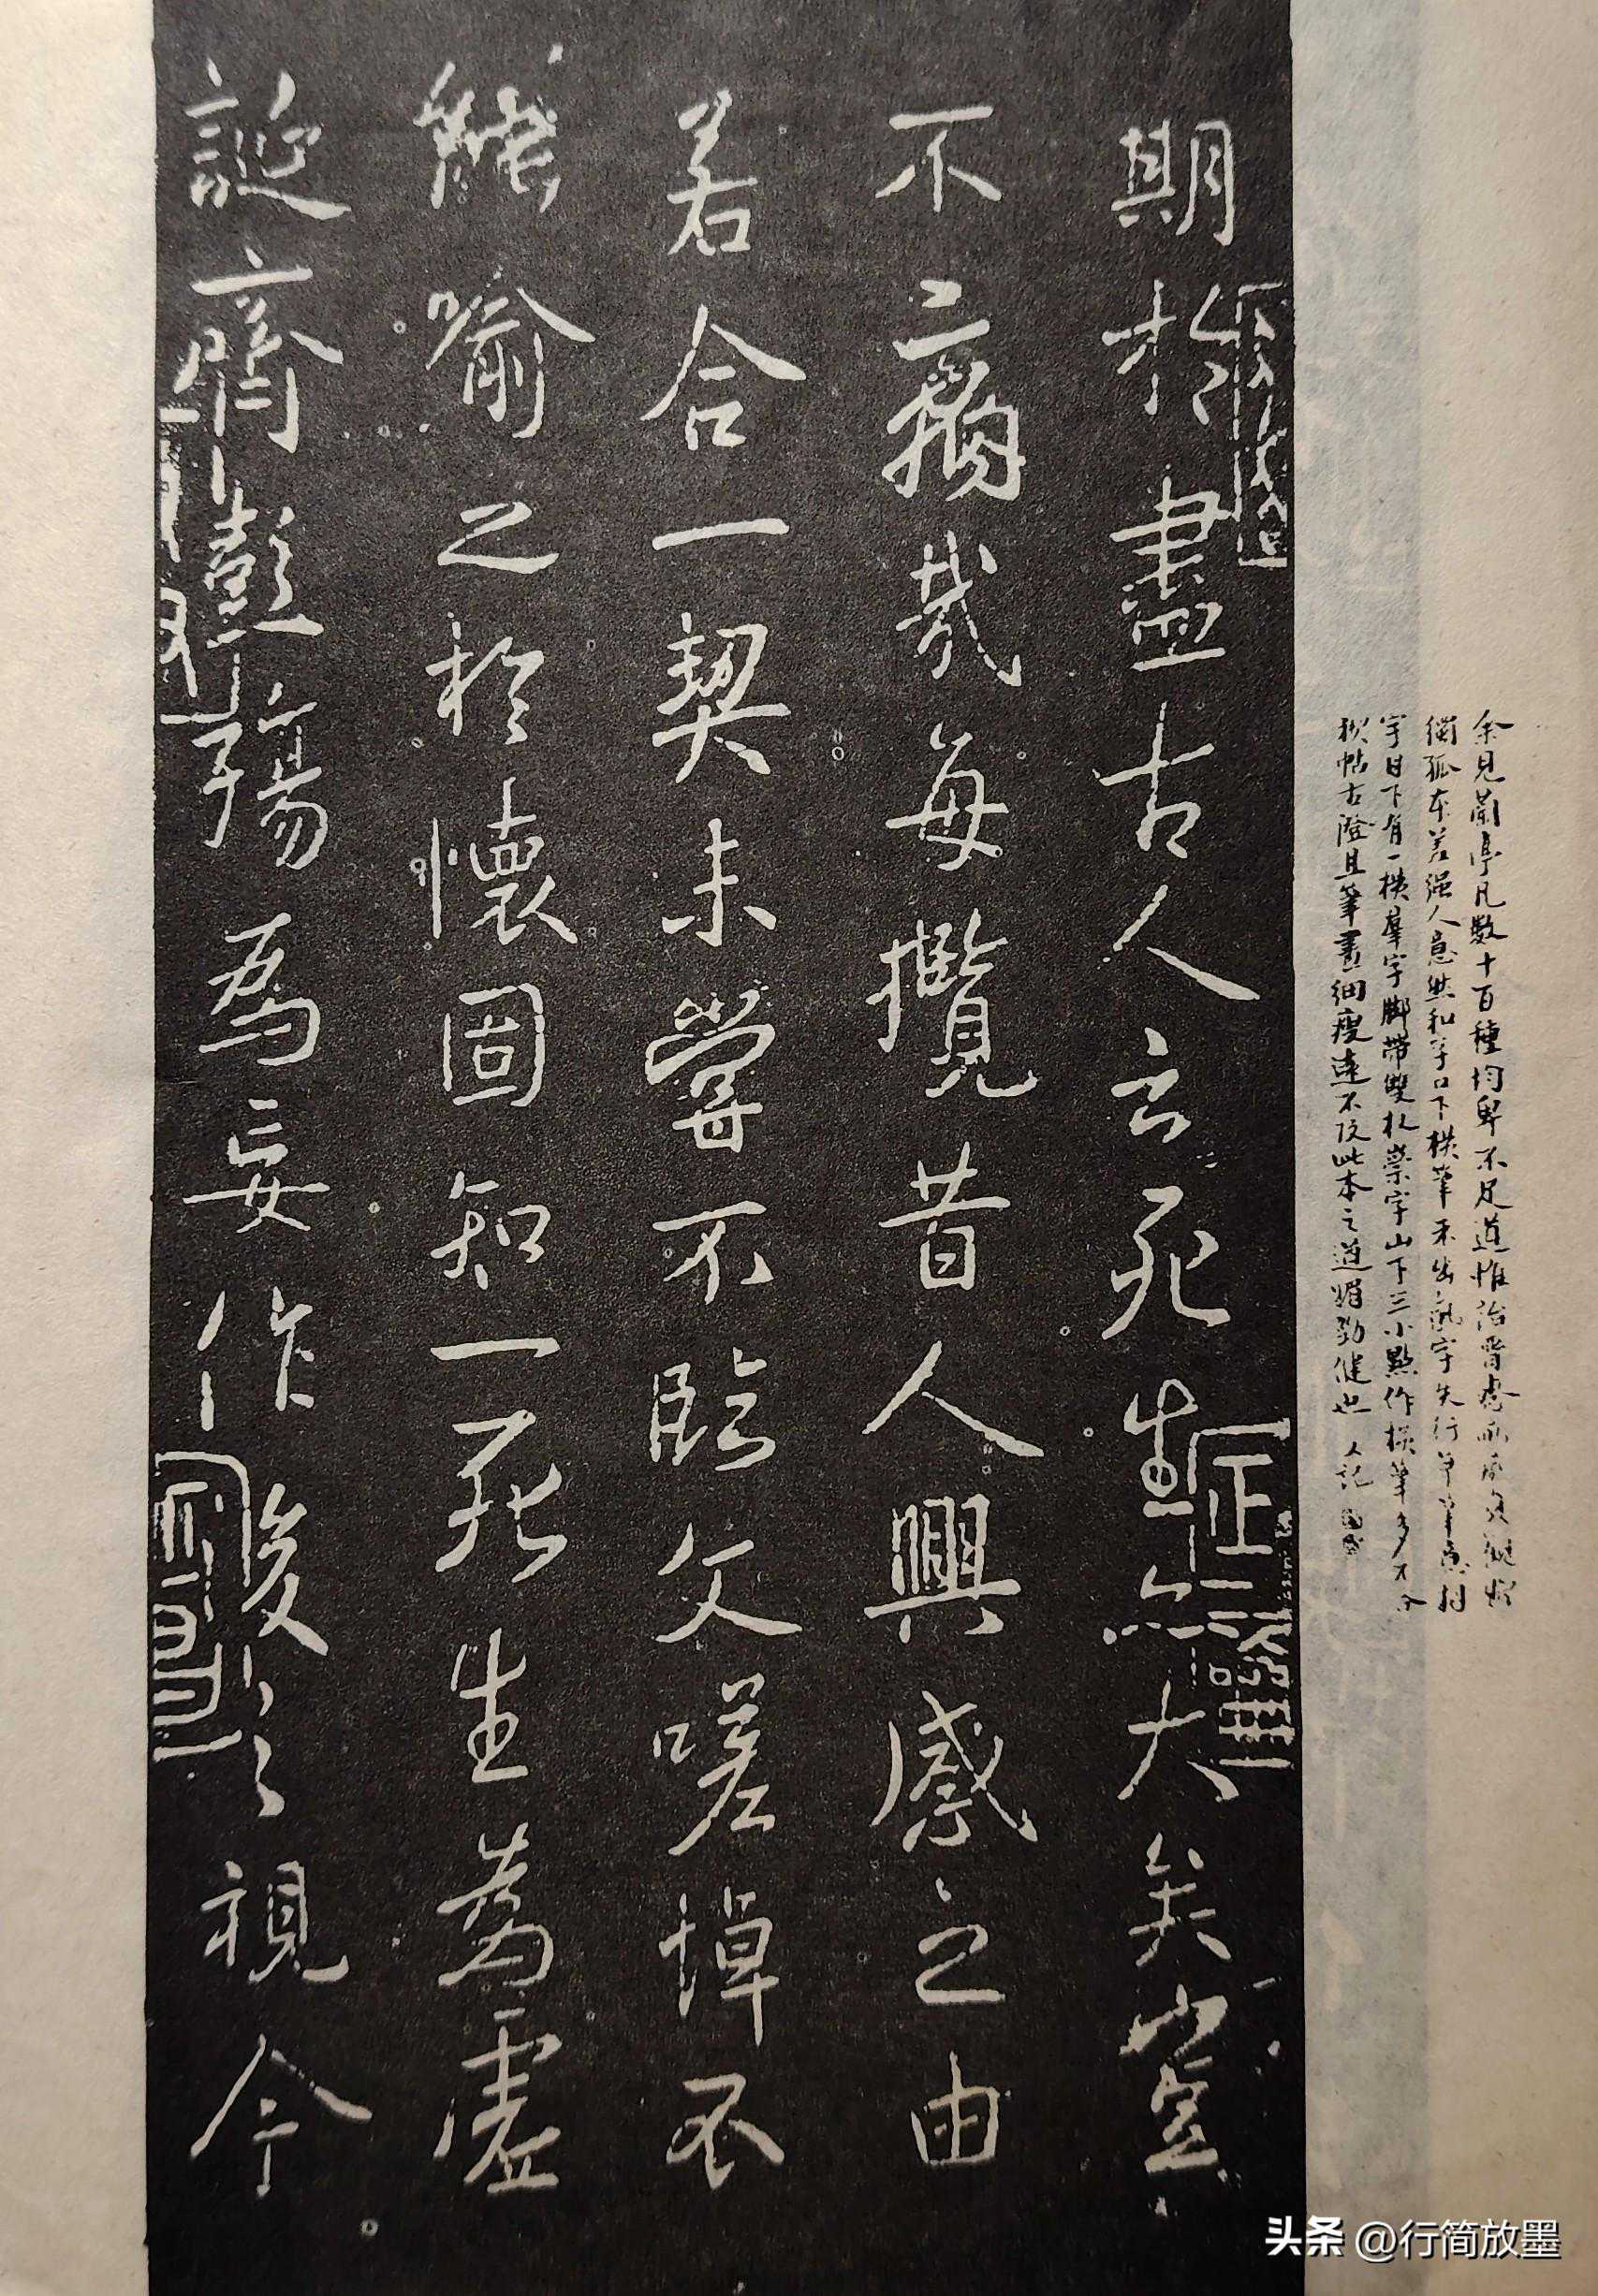 期於盡古人云死生亦大矣豈
不痛哉每攬昔人興感之由
若合一契未嘗不臨文嗟悼不
能喻之於懷固知一死生為虛
誕齊彭殤為妄作後之視今
余見蘭亭凡數十百種均卑不足道惟
獨孤本差強人意然和字口下橫筆未出
字目下有一橫羣字腳帶雙杈崇字山下三小點作橫筆多不合
帖古澄且筆畫細瘦遠不及此本之遒媚勁健也 人記
头条 @行简放墨